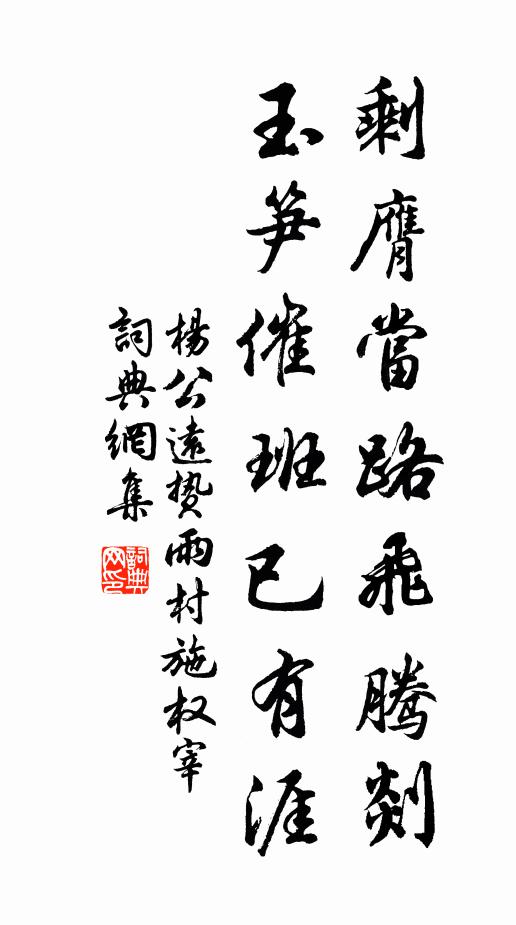 剩膺當路飛騰剡
玉笋催班已有涯
楊公遠贄雨村施权宰
詞典網集
詞典网印